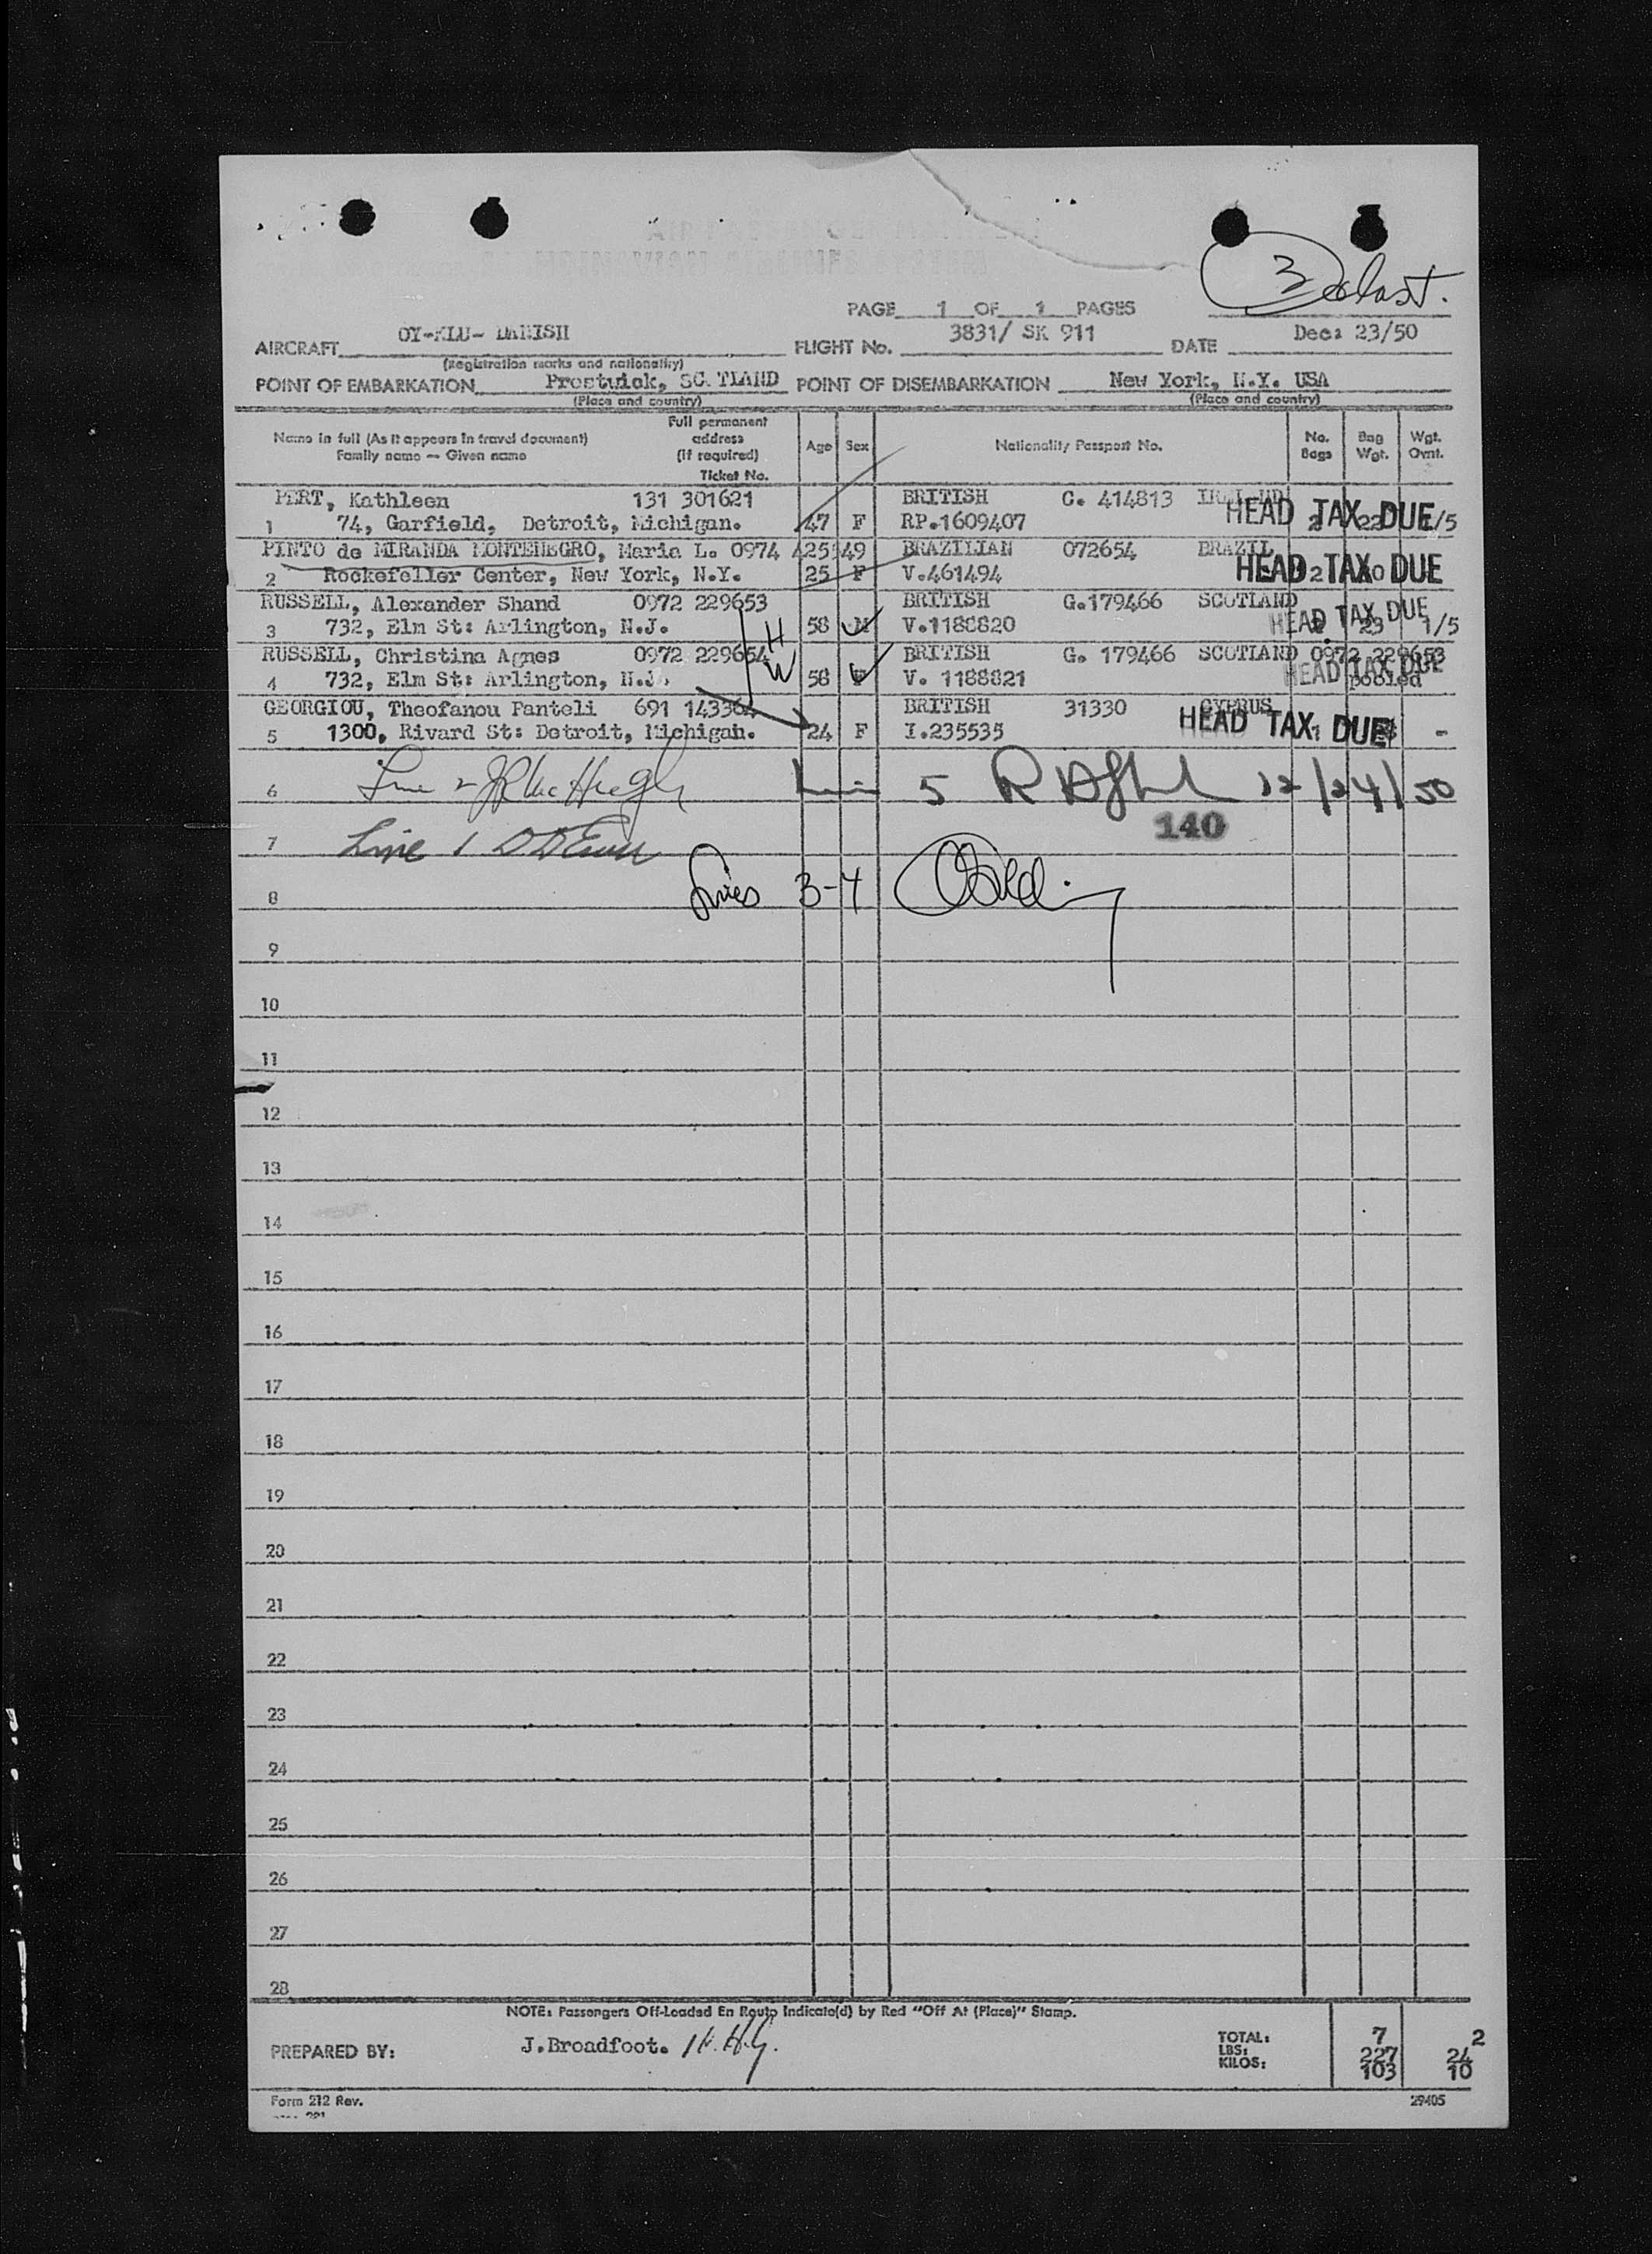 3
PAGE 1 OF 1 PAGES
AIRCRAFT OY-KLU- DANISH FLIGHT No. 3831/ SK 911 DATE Dec: 23/50
(Registration marks and nationality)
POINT OF EMBARKATION Prestwick, SC. TLAND POINT OF DISEMBARKATION New York, N.Y. USA
(Place and country) (Place and country)
Name in full (As it appears in travel document) Family name — Given name Full permanent address (if required) Ticket No. Age Sex Nationality Passport No. No. Bags Bag Wgt. Wgt. Ovnt.
Kathleen 131 301621 BRITISH C. 414813
1 74, Garfield, Detroit, Michigan. 47 F RP.1609407 HEAD TAX DUE 1/5
PINTO de MIRANDA MONTENEGRO, Maria L. 0974 425149 BRAZILIAN 072654 BRAZIL
2 Rockefeller Center, New York, N.Y. 25 F V.461494 HEAD TAX DUE
RUSSELL, Alexander Shand 0972 229653 BRITISH G.179466 SCOTLAND
3 732, Elm St: Arlington, N.J. H 58 M V.1188820 HEAD TAX DUE 23 1/5
RUSSELL, Christina Agnes 0972 229654 BRITISH G. 179466 SCOTLAND 0972 229653
4 732, Elm St: Arlington, N.J. W 58 F V. 1188821 HEAD TAX DUE pooled
GEORGIOU, Theofanou Panteli 691 143364 BRITISH 31330 CYPRUS
5 1300, Rivard St: Detroit, Michigan. 24 F I.235535 HEAD TAX DUE -
6 Line 2 JP McHugh Line 5 12/24/50
140
7 Line 1
8 Lines 3-4
9
10
11
12
13
14
15
16
17
18
19
20
21
22
23
24
25
26
27
28
NOTE: Passengers Off-Loaded En Route Indicate(d) by Red "Off At (Place)" Stamp.
PREPARED BY: J.Broadfoot. /H.H.G.
TOTAL: 7 2
LBS: 227 24
KILOS: 103 10
Form 212 Rev. 29405